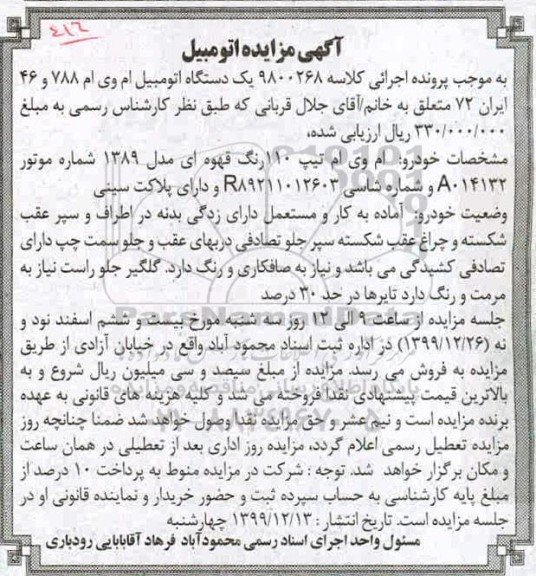 ۴۱۶
آگهی مزایده اتومبیل
به موجب پرونده اجرائی کلاسه ۹۸۰۰۲۶۸ یک دستگاه اتومبیل ام وی ام ۷۸۸ و ۴۶
ایران ۷۲ متعلق به خانم/آقای جلال قربانی که طبق نظر کارشناس رسمی به مبلغ
۳۳۰/۰۰۰/۰۰۰ ریال ارزیابی شده،
مشخصات خودرو: ام وی ام تیپ ۱۱۰رنگ قهوه ای مدل ۱۳۸۹ شماره موتور
A۰۱۴۱۳۲ و شماره شاسی R۸۹۲۱۱۰۱۲۶۰۳ و دارای پلاکت سینی
وضعیت خودرو: آماده به کار و مستعمل دارای زدگی بدنه در اطراف و سپر عقب
شکسته و چراغ عقب شکسته سپر جلو تصادفی دربهای عقب و جلو سمت چپ دارای
تصادفی کشیدگی می باشد و نیاز به صافکاری و رنگ دارد. گلگیر جلو راست نیاز به
مرمت و رنگ دارد تایرها در حد ۳۰ درصد
جلسه مزایده از ساعت ۹ الی ۱۲ روز سه شنبه مورخ بیست و ششم اسفند نود و
نه (۱۳۹۹/۱۲/۲۶) در اداره ثبت اسناد محمود آباد واقع در خیابان آزادی از طریق
مزایده به فروش می رسد. مزایده از مبلغ سیصد و سی میلیون ریال شروع و به
بالاترین قیمت پیشنهادی نقدا فروخته می شد و کلیه هزینه های قانونی به عهده
برنده مزایده است و نیم عشر و حق مزایده نقدا وصول خواهد شد ضمنا چنانچه روز
مزایده تعطیل رسمی اعلام گردد، مزایده روز اداری بعد از تعطیلی در همان ساعت
و مکان برگزار خواهد شد. توجه : شرکت در مزایده منوط به پرداخت ۱۰ درصد از
مبلغ پایه کارشناسی به حساب سپرده ثبت و حضور خریدار و نماینده قانونی او در
جلسه مزایده است. تاریخ انتشار : ۱۳۹۹/۱۲/۱۳ چهارشنبه
مسئول واحد اجرای اسناد رسمی محمودآباد فرهاد آقابابایی رودباری
ParsNamadData